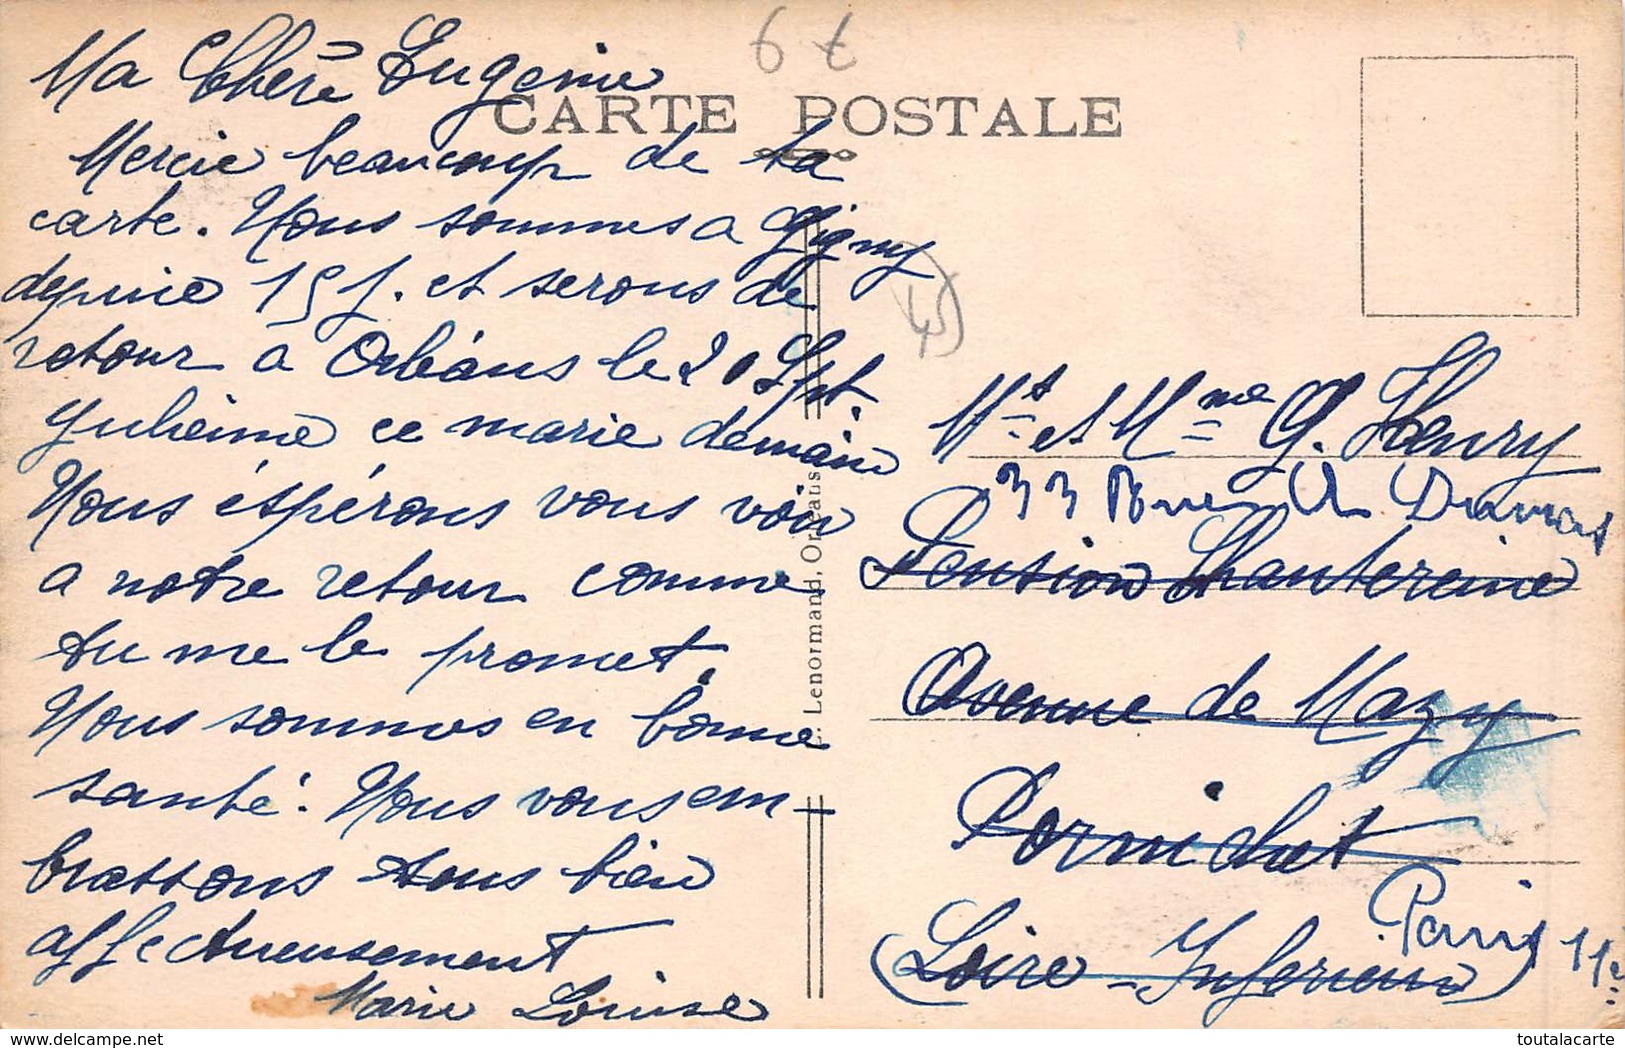 6 t
CARTE POSTALE
Ma Chère Eugenie
Mercie beaucoup de ta
carte. Nous sommes a Gigny
depuie 15 j. et serons de
retour a Orléans le 20 Sept.
yuheime ce marie demain
Nous éspérons vous voir
a notre retour comme
tu me le promet.
Nous sommes en bonne
santé. Nous vous em-
brassons tous bien
affectueusement
Marie Louise
Lenormand, Orléans
45
Mr. et Mme G. Henry
33 Rue
Pension Chantereine
Avenue de Mazy
Pornichet
(Loire-Inferieure)
Paris 11e
toutalacarte